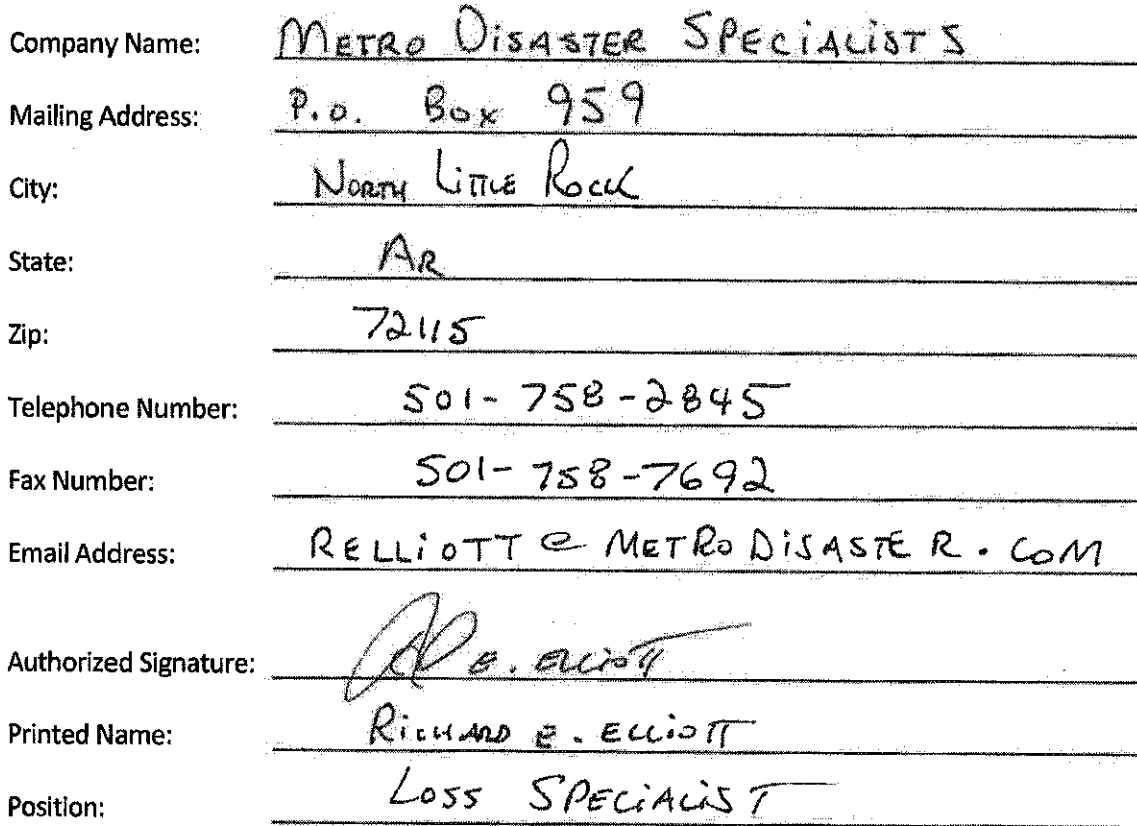 Company Name: METRO DISASTER SPECIALISTS
Mailing Address: P.O. Box 959
City: NORTH LITTLE ROCK
State: AR
Zip: 72115
Telephone Number: 501-758-2845
Fax Number: 501-758-7692
Email Address: RELLIOTT@METRODISASTER.COM
Authorized Signature: E. ELLIOTT
Printed Name: RICHARD E. ELLIOTT
Position: LOSS SPECIALIST